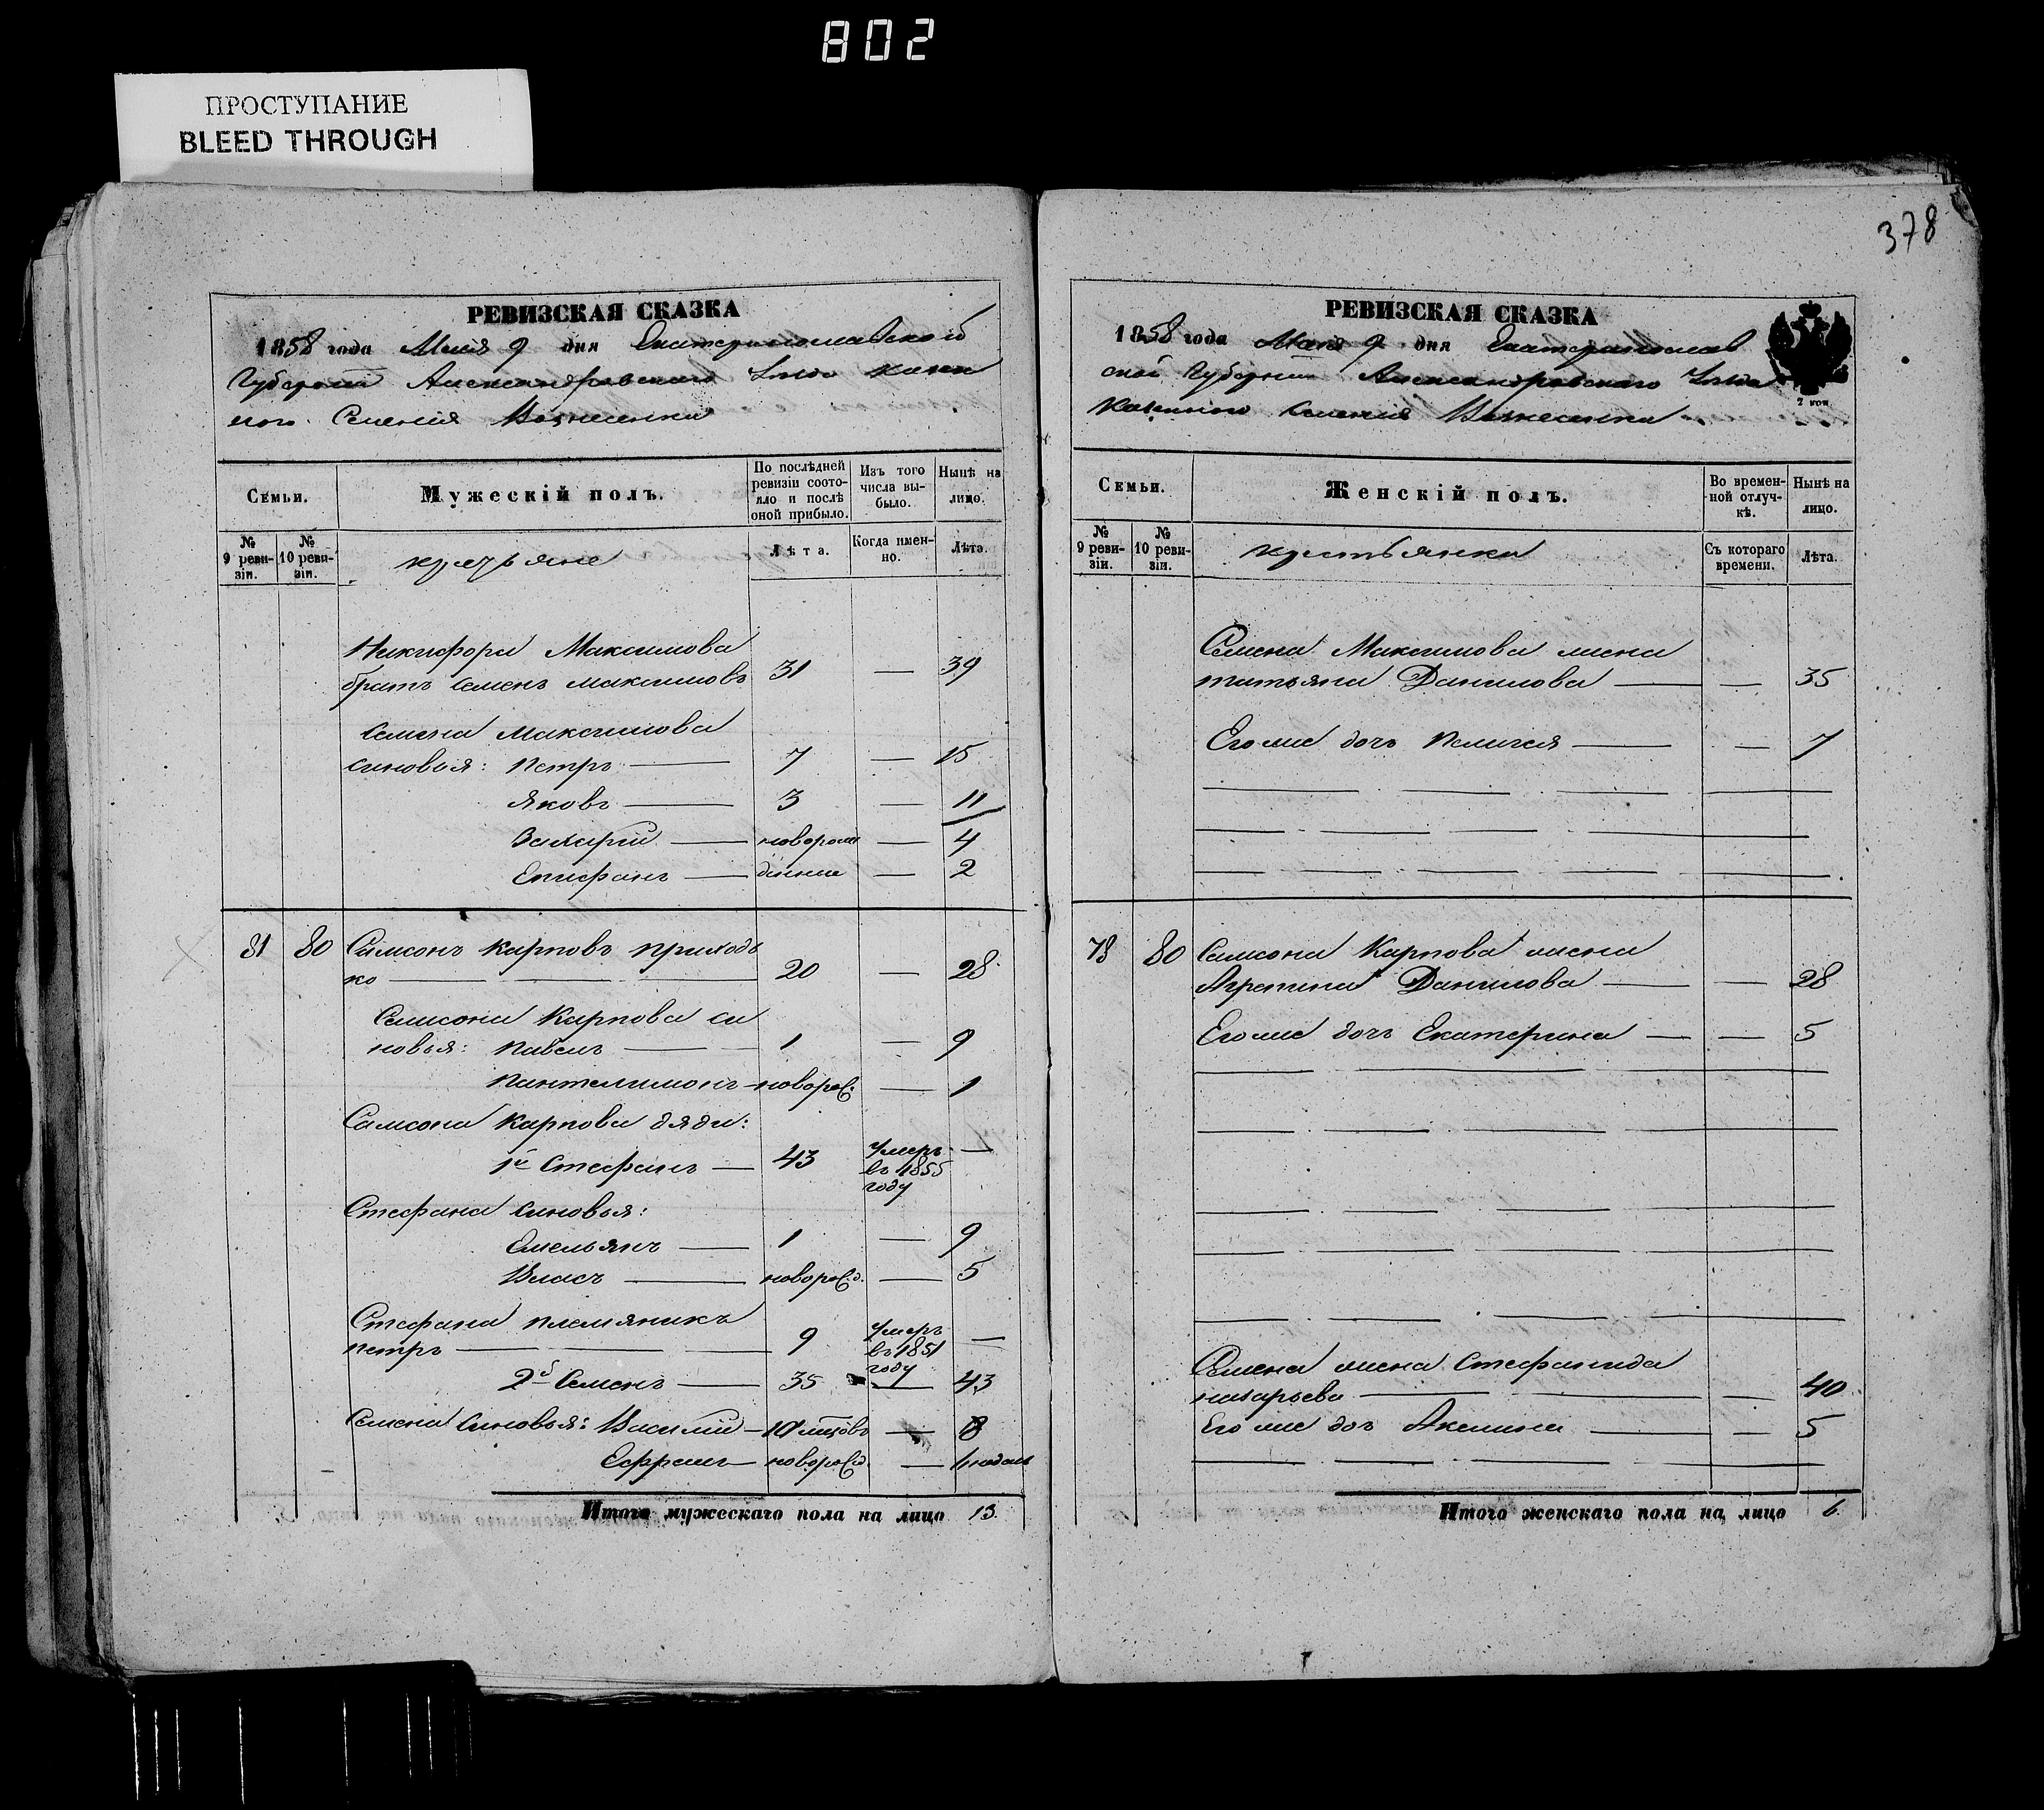 802
ПРОСТУПАНИЕ
BLEED THROUGH
378
РЕВИЗСКАЯ СКАЗКА
1858 года Мая 9 дня Екатеринославской
Губернии Александровского Уезда казен
ного Селения Вознесенки
Семьи.
Мужескій полъ.
По послѣдней ревизіи состояло и послѣ оной прибыло.
Изъ того числа выбыло.
Нынѣ на лицо.
№ 9 ревизіи.
№ 10 ревизіи.
крестьяне
Лѣта.
Когда именно.
Лѣта.
Никифора Максимова
братъ Семенъ Максимовъ 31 — 39
Семена Максимова
сыновья: Петръ — 7 — 15
Яковъ — 3 — 11
Захарій — новорож — 4
Епифанъ — денные — 2
81 80 Самсонъ Карповъ Приходь
ко — 20 — 28
Самсона Карпова сы
новья: Павелъ — 1 — 9
Пантелимонъ — новорож. — 1
Самсона Карпова дяди:
1й Стефанъ — 43 умеръ въ 1855 году —
Стефана сыновья:
Емельянъ — 1 — 9
Власъ — новорожд. — 5
Стефана племяникъ
Петръ — 9 умеръ въ 1851 году —
2й Семенъ — 35 — 43
Семена сыновья: Василій — 10 — 8
Ефремъ — новорожд. —
Итого мужескаго пола на лицо 13.
РЕВИЗСКАЯ СКАЗКА
1858 года Мая 9 дня Екатеринослав
ской Губернии Александровского Уезда
Казенного Селения Вознесенка
2 коп
Семьи.
Женскій полъ.
Во временной отлучкѣ.
Нынѣ на лицо.
№ 9 ревизіи.
№ 10 ревизіи.
крестьянки
Съ котораго времени.
Лѣта.
Семена Максимова жена
татьяна Данилова — — 35
Его же дочь Пелагея — — 7
78 80 Самсона Карпова жена
Агрепина Данилова — — 28
Его же дочь Екатерина — — 5
Семена жена Стефанида
назарьева — — 40
Его же доч Акелина — — 5
Итого женскаго пола на лицо 6.